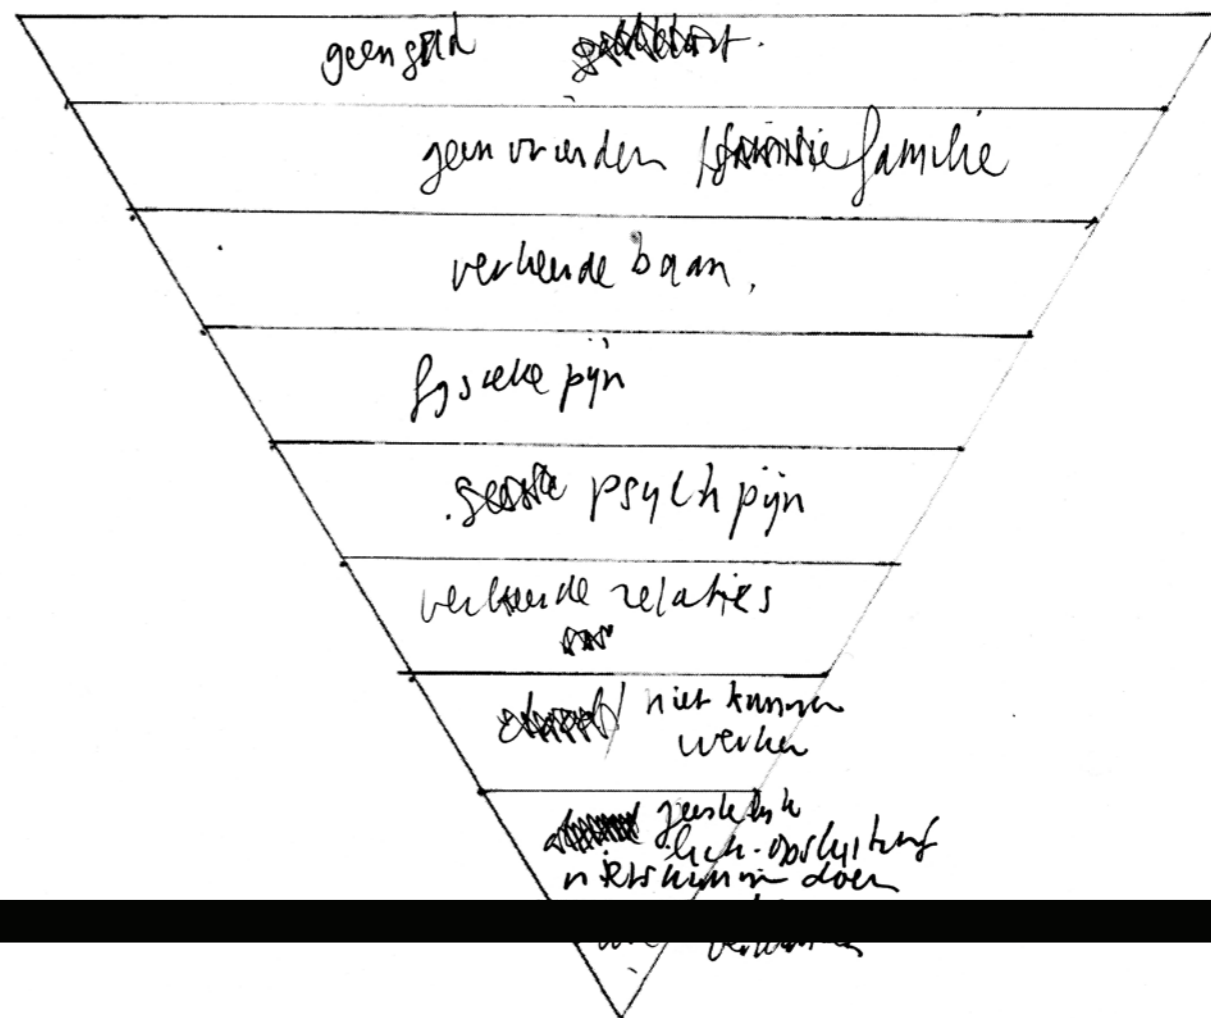 geen geld
geen vrienden / familie
verkeerde baan,
fysieke pijn
psych pijn
verkeerde relaties
niet kunnen
werken
geestelijk
lich. opsluiting
niets kunnen doen